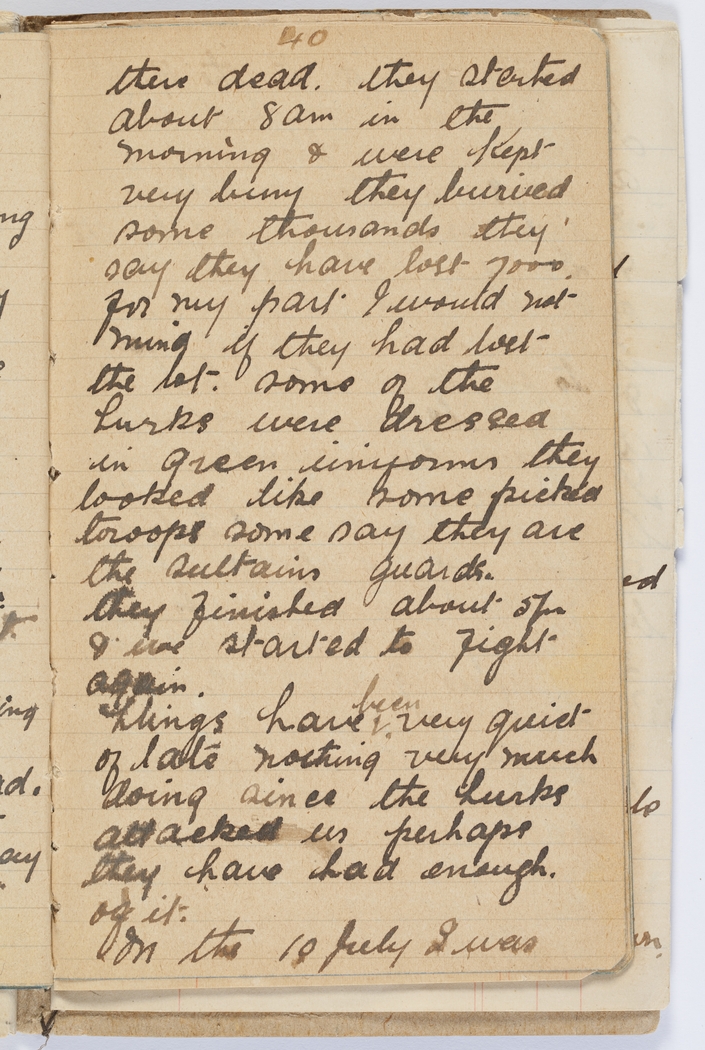 40
there dead. they started
about 8am in the
morning & were kept
very busy they buried
some thousands they
say they have lost 7000.
for my part I would not
mind if they had lost
the lot. some of the
turks were dressed
in green uniforms they
looked like some picked
troops some say they are
the sultains guards.
they finished about 5pm
& we started to fight
again.
things have been very quiet
of late nothing very much
doing since the turks
attacked us perhaps
they have had enough.
of it.
On the 10 July I was